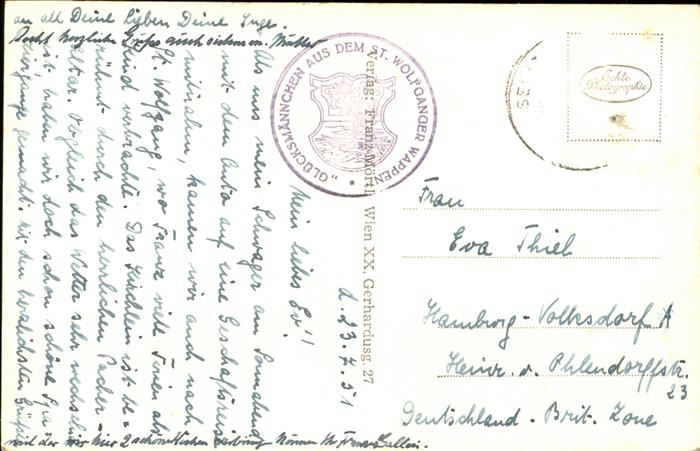 an all Deine Lieben Deine Inge.
Recht herzliche Grüße auch seitens m. Mutter
d. 23.7.51
Mein liebes Ev'!
Als uns mein Schwager am Sonnabend
mit dem Auto auf eine Geschäftsreise
mitnahm, kamen wir auch nach
St. Wolfgang, wo Franz viele Ferien als
Kind verbrachte. Das Kirchlein ist be=
rühmt durch den herrlichen Pacher-
altar. Obgleich das Wetter sehr wechselnd
ist haben wir doch schon schöne Spa-
ziergänge gemacht. Mit den herzlichsten Grüßen
"GLÜCKSMÄNNCHEN AUS DEM ST. WOLFGANGER WAPPEN"
Verlag: Franz Mörtl, Wien XX, Gerhardusg. 27
Echte
Photographie
Frau
Eva Thiel
Hamburg-Volksdorf
Heinr. v. Ohlendorffstr.
23
Deutschland - Brit. Zone
mit der wir hier 2 schöne Wochen